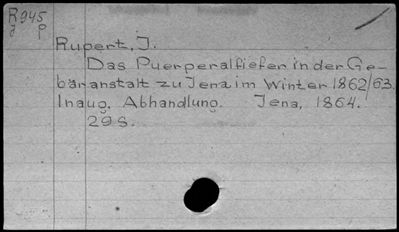 R945
J P
Rupert, J.
Das Puerperalfiefer in der Ge-
bäranstalt zu Jena im Winter 1862/63.
Inaug. Abhandlung. Jena, 1864.
29 S.